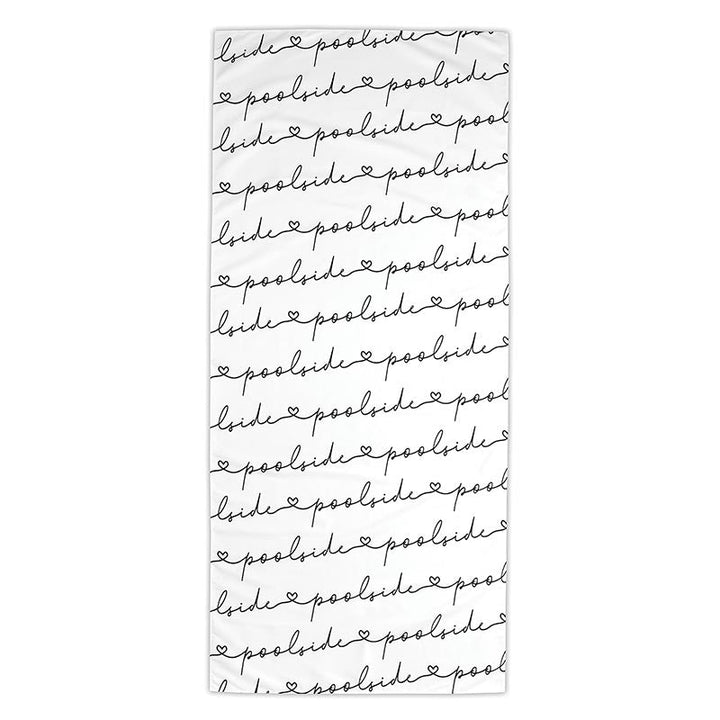 lside poolside po
poolside poolside
lside poolside pool
poolside poolside
lside poolside pool
poolside poolside
lside poolside pool
poolside poolside
lside poolside pool
poolside poolside
lside poolside pool
poolside poolside
lside poolside pool
poolside poolside
lside poolside pool